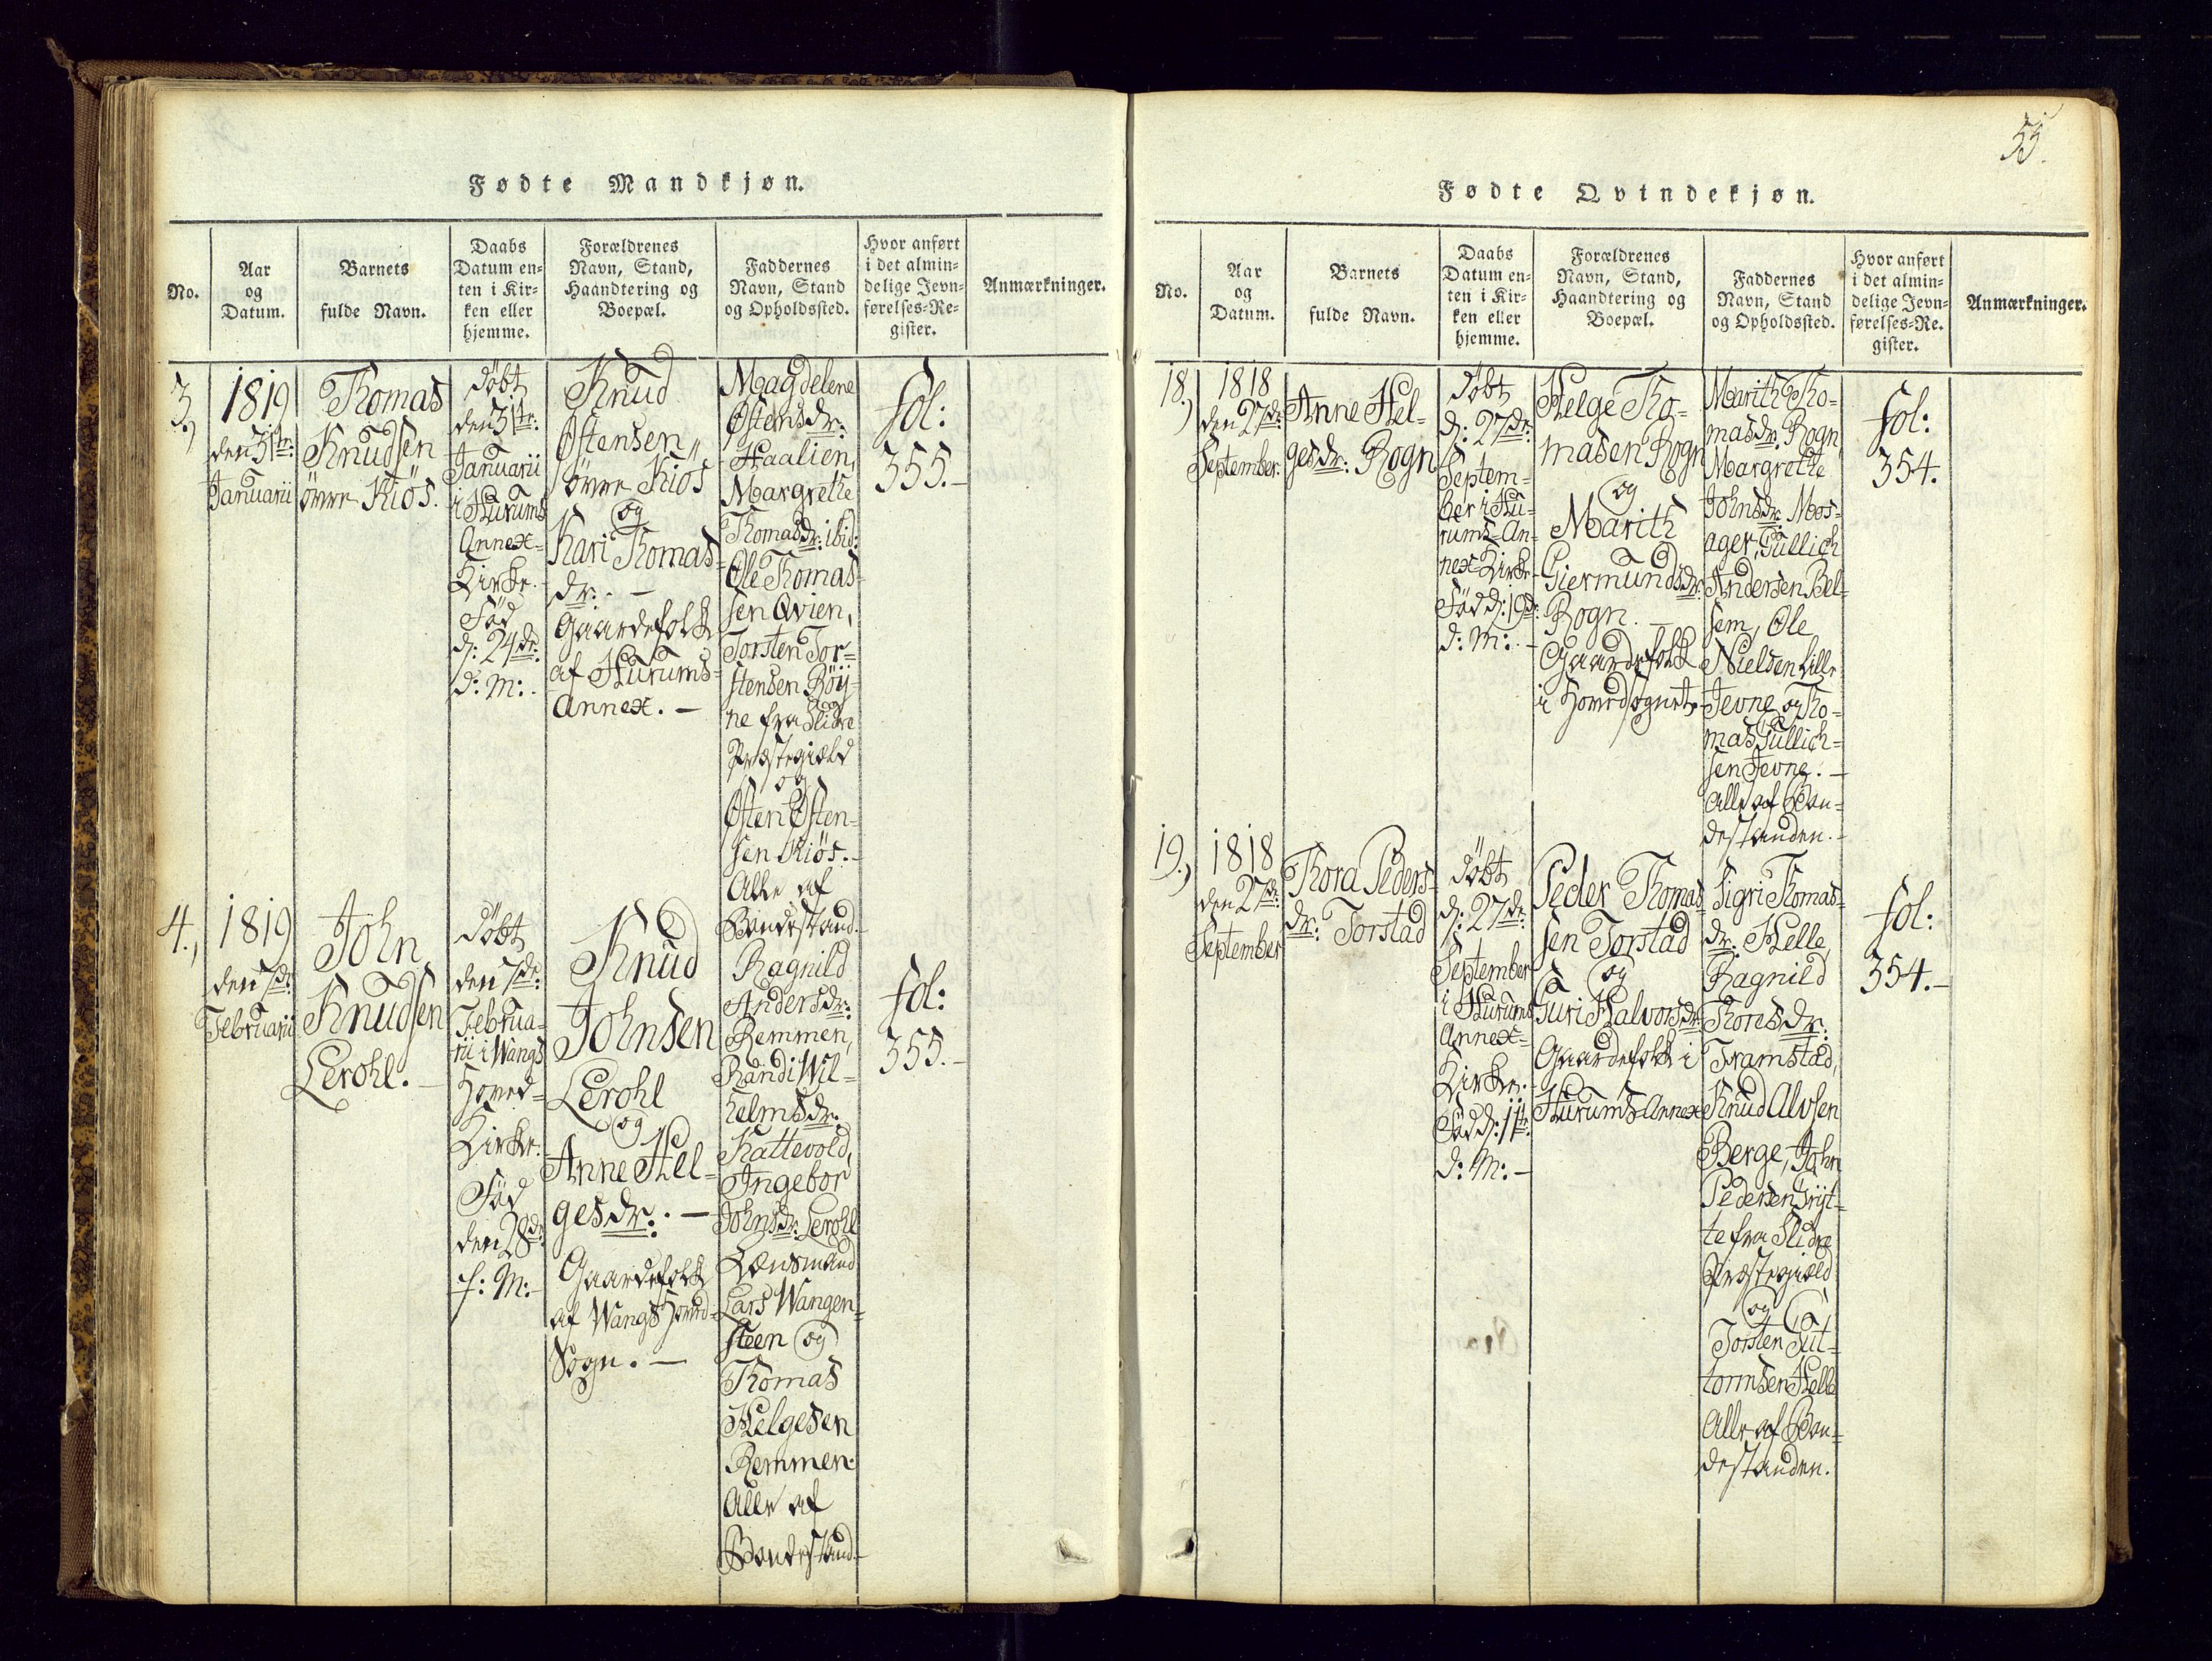 Fødte Mandkjøn.
No.
Aar
og
Datum.
Barnets
fulde Navn.
Daabs
Datum en-
ten i Kir-
ken eller
hjemme.
Forældrenes
Navn, Stand,
Haandtering og
Boepæl.
Faddernes
Navn, Stand
og Opholdssted.
Hvor anført
i det almin-
delige Jevn-
førelses-Re-
gister.
Anmærkninger.
3.,
1819
den 31te:
Januarii
Thomas
Knudsen
övre Kiös.
döbt
den 31te:
Januarii
i Hurums
Annex-
Kirke.
Föd
d: 24de:
d: M:.
Knud
Østensen
övre Kiös
og
Kari Thomas-
dr:. -
Gaardefolk
af Hurums-
Annex. -
Magdelene
Østensdr:
Haalien,
Margrethe
Thomasdr: ibid:
Ole Thomas-
sen Qvien,
Torsten Tor-
stensen Röy-
ne fra Slidre
Præstegiæld
og
Østen Østen-
sen Kiös.-
Alle af
Bondestand.-
fol:
355.-
4.,
1819
den 7de:
Februarii
John
Knudsen
Lerohl. -
döbt
den 7de:
Februa-
rii i Wangs
Hoved-
Kirke.
Föd
den 28de
f: M:-
Knud
Johnsen
Lerohl
og
Anne Hel-
gesdr:. -
Gaardefolk
af Wangs Hoved-
Sogn. -
Ragnild
Andersdr:
Remmen,
Randi Wil-
helmsdr:
Kattevold,
Ingebor
Johnsdr: Lerohl
Lensmand
Lars Wangen-
steen og
Thomas
Helgesen
Remmen.
Alle af
Bondestand.-
fol:
355.-
55.
Fødte Qvindekjøn.
No.
Aar
og
Datum.
Barnets
fulde Navn.
Daabs
Datum en-
ten i Kir-
ken eller
hjemme.
Forældrenes
Navn, Stand,
Haandtering og
Boepæl.
Faddernes
Navn, Stand
og Opholdssted.
Hvor anført
i det almin-
delige Jevn-
førelses-Re-
gister.
Anmærkninger.
18.,
1818
den 27de:
September.
Anne Hel-
gesdr: Rogn
döbt
d: 27de:
Septem-
ber i Hu-
rums-An-
nex-Kirke-
Föd d: 19de:
d: M:. -
Helge Tho-
masen Rogn
og
Marith
Giermundsdr:
Rogn. -
Gaardefolk
i Hovedsognet.
Marith Tho-
masdr: Rogn,
Margrethe
Johnsdr: Mos-
ager, Gullich
Andersen Bel-
sem, Ole
Nielsen Lille
Jevne og Tho-
mas Gullich-
sen Jevne. -
Alle af Bon-
destanden.-
fol:
354.
19.,
1818
den 27de:
September
Thora Peders-
dr: Torstad
döbt
d: 27de:
September
i Hurums
Annex-
Kirke.
Föd d: 11te:
d: M:. -
Peder Thomas-
sen Torstad
og
Guri Halvorsdr:
Gaardefolk i
Hurums-Annex
Sigri Thomas-
dr: Helle,
Ragnild
Thoresdr:
Framstad,
Knud Alvsen
Berge, John
Pedersen Tryt-
te fra Slidre
Præstegiæld
og
Torsten Gut-
tormsen Helle
Alle af Bon-
destanden.
fol:
354.-